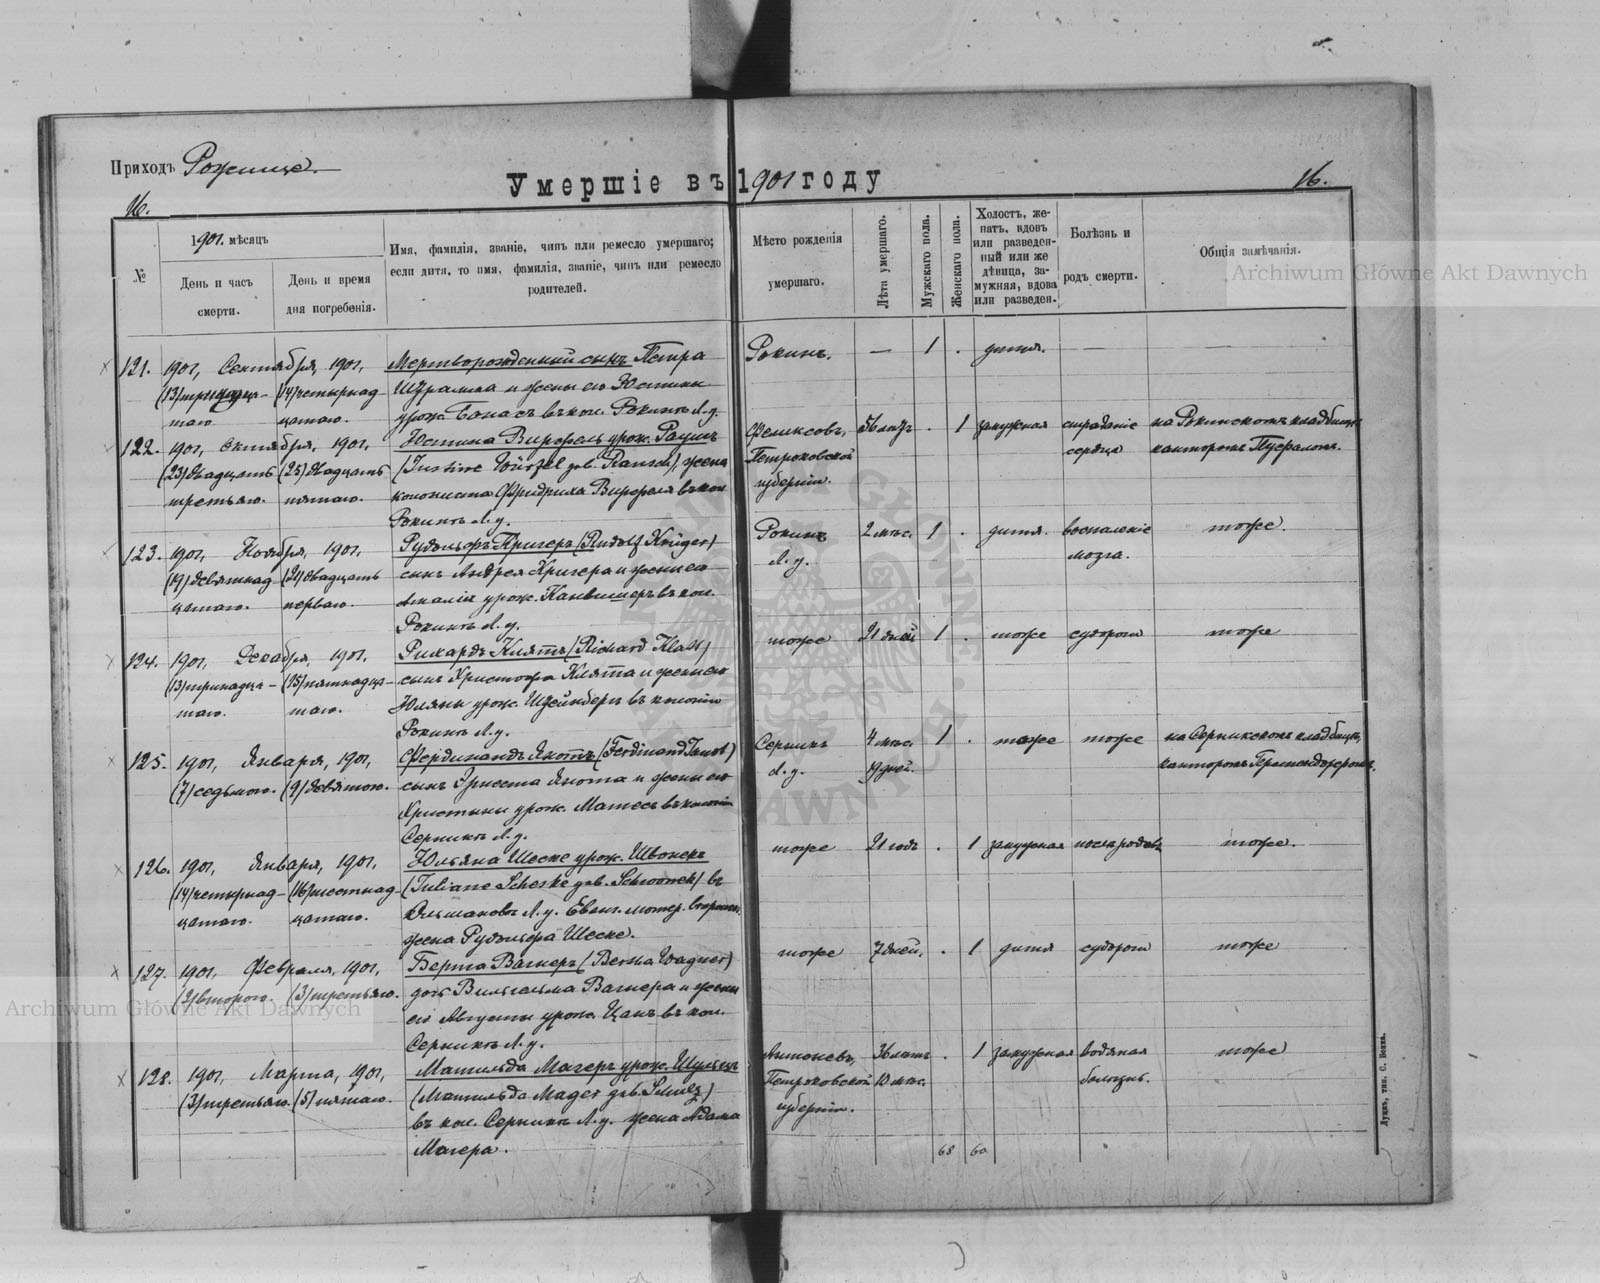 Приходъ Рожище.
Умершіе въ 1901 году
16.
16.
№
1901. мѣсяцъ
День и часъ
смерти.
День и время
дня погребенія.
Имя, фамилія, званіе, чинъ или ремесло умершаго;
если дитя, то имя, фамилія, званіе, чинъ или ремесло
родителей.
Мѣсто рожденія
умершаго.
Лѣта умершаго.
Мужскаго пола.
Женскаго пола.
Холостъ, же-
натъ, вдовъ
или разведен-
ный или же
дѣвица, за-
мужняя, вдова
или разведен.
Болѣзнь и
родъ смерти.
Общія замѣчанія.
Archiwum Główne Akt Dawnych
121. 1901, Сентября, 1901, Мертворожденный сынъ Петра Рокинъ. — 1 . дитя. — —
(13) тринадца- (14) четырнад- Шрамма и жены его Юстины
таго. цатаго. урож. Банасъ въ кол. Рокинъ Л.у.
122. 1901, Октября, 1901, Юстина Вирфель урож. Раушъ Феликсовъ, 56 лѣтъ . 1 замужная страданіе на Рокинскомъ кладбищѣ
(23) двадцать (25) двадцать (Justine Würzel geb. Rausch), жена Петроковской сердца канторомъ
третьяго. пятаго. колониста Фридриха Вирфеля въ кол. губерніи.
Рокинъ Л.у.
123. 1901, Ноября, 1901, Рудольфъ Кригеръ (Rudolf Krüger) Рокинъ 2 мѣс. 1 . дитя. воспаленіе тоже.
(19) девятнад- (21) двадцать сынъ Андрея Кригера и жены его Л.у. мозга.
цатаго. перваго. Амаліи урож. въ кол.
Рокинъ Л.у.
124. 1901, Декабря, 1901, Рихардъ Клятъ (Richard Klatt) тоже 21 дней 1 . тоже судороги тоже
(13) тринадца- (15) пятнадца- сынъ Христофа Клята и жены его
таго. таго. Юляны урож. Штейнбергъ въ колоніи
Рокинъ Л.у.
125. 1901, Января, 1901, Фердинандъ Яютъ (Ferdinand) Серникъ 4 мѣс. 1 . тоже тоже на Серникскомъ кладбищѣ,
(7) седьмого. (9) девятого. сынъ Эрнеста и жены его Л.у. 19 дней. канторомъ
Христины урож. Матесъ въ колоніи
Серникъ Л.у.
126. 1901, Января, 1901, Юльяна Шеске урож. Швонекъ тоже 21 годъ . 1 замужная послѣ родовъ тоже.
(14) четырнад- (16) шестнад- (Juliane Scheske geb. Schwonek) въ
цатаго. цатаго. Л.у. Еванг. лютер.
жена Рудольфа Шеске.
127. 1901, Февраля, 1901, Берта Вагнеръ (Berta Wagner) тоже 7 дней. . 1 дитя судороги тоже
(2) второго. (3) третьяго. дочь Вильгельма Вагнера и жены
его Августы урож. Цанъ въ кол.
Серникъ Л.у.
128. 1901, Марта, 1901, Матильда Магеръ урож. Шульцъ Антоневъ, 36 лѣтъ . 1 замужная водяная тоже
(3) третьяго. (5) пятаго. (Матильда Mager geb. Schulz) Петроковской 10 мѣс. болѣзнь.
въ кол. Серникъ Л.у. жена Адама губерніи.
Магера.
68 60
Archiwum Główne Akt Dawnych
Луцкъ, тип. С. Бокъ.